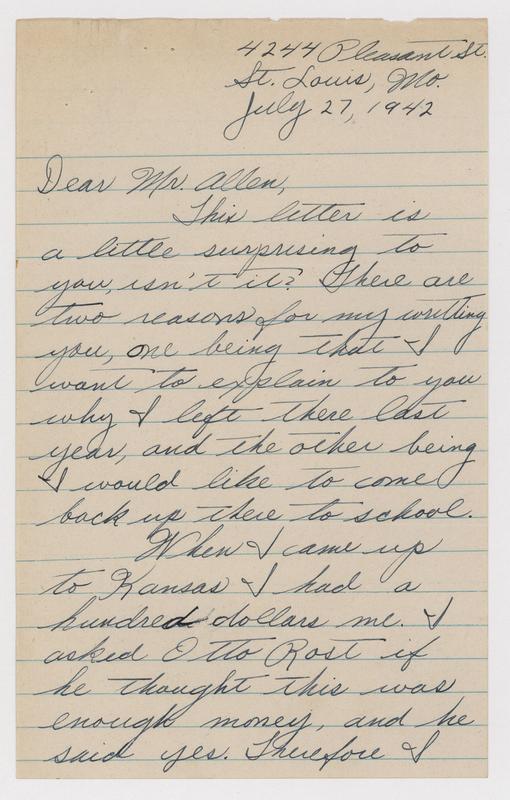 4244 Pleasant St.
St. Louis, Mo.
July 27, 1942
Dear Mr. Allen,
This letter is
a little surprising to
you, isn't it? There are
two reasons for my writing
you, one being that I
want to explain to you
why I left there last
year, and the other being
I would like to come
back up there to school.
When I came up
to Kansas I had a
hundred dollars me. I
asked Otto Rost if
he thought this was
enough money, and he
said yes. Therefore I